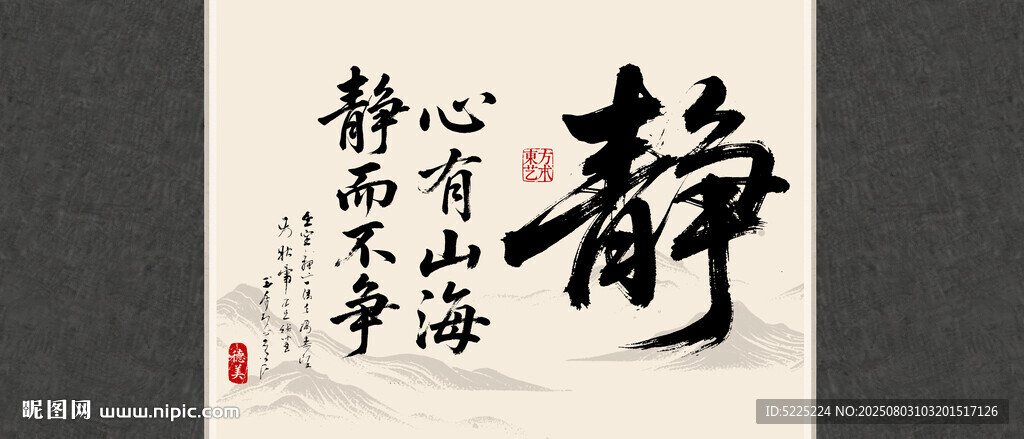 静
心有山海
静而不争
东方艺术
德美
昵图网 www.nipic.com
ID:5225224 NO:20250803103201517126